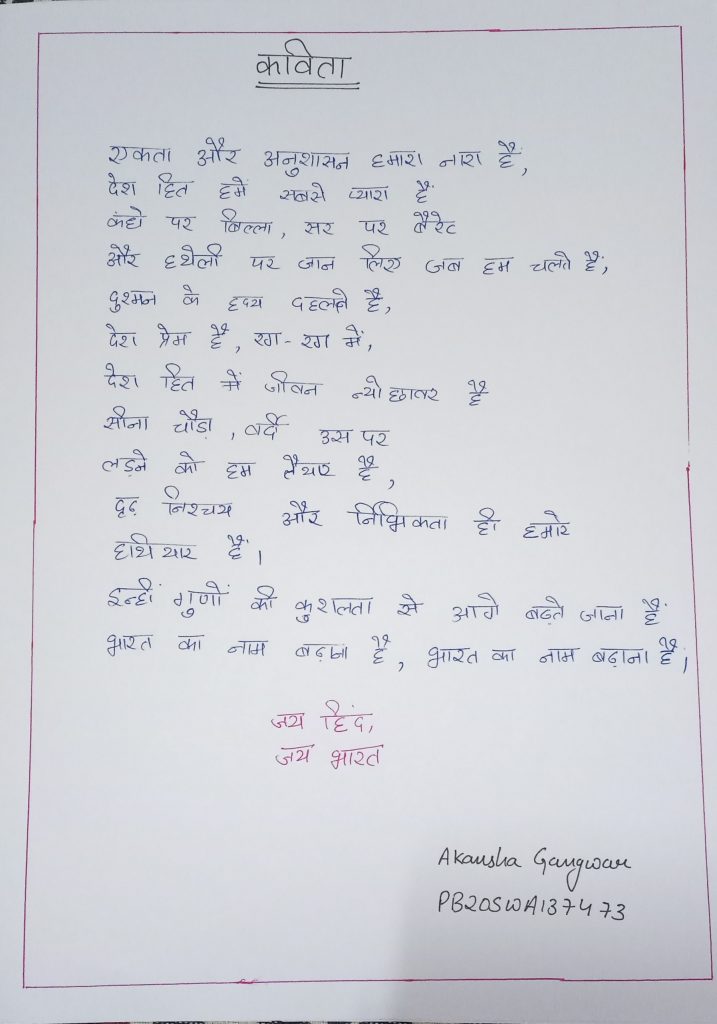 कविता
एकता और अनुशासन हमारा नारा हैं,
देश हित हमें सबसे प्यारा हैं
कंधे पर बिल्ला, सर पर बैरेट
और हथेली पर जान लिए जब हम चलते हैं,
दुश्मन के हृदय दहलते है,
देश प्रेम है, रग-रग में,
देश हित में जीवन न्योछावर है
सीना चौड़ा, वर्दी उस पर
लड़ने को हम तैयार है,
दृढ़ निश्चय और निर्भिकता ही हमारे
हथियार हैं।
इन्हीं गुणों की कुशलता से आगे बढ़ते जाना हैं
भारत का नाम बढ़ाना है, भारत का नाम बढ़ाना है।
जय हिंद,
जय भारत
Akansha Gangwar
PB20SWA137473